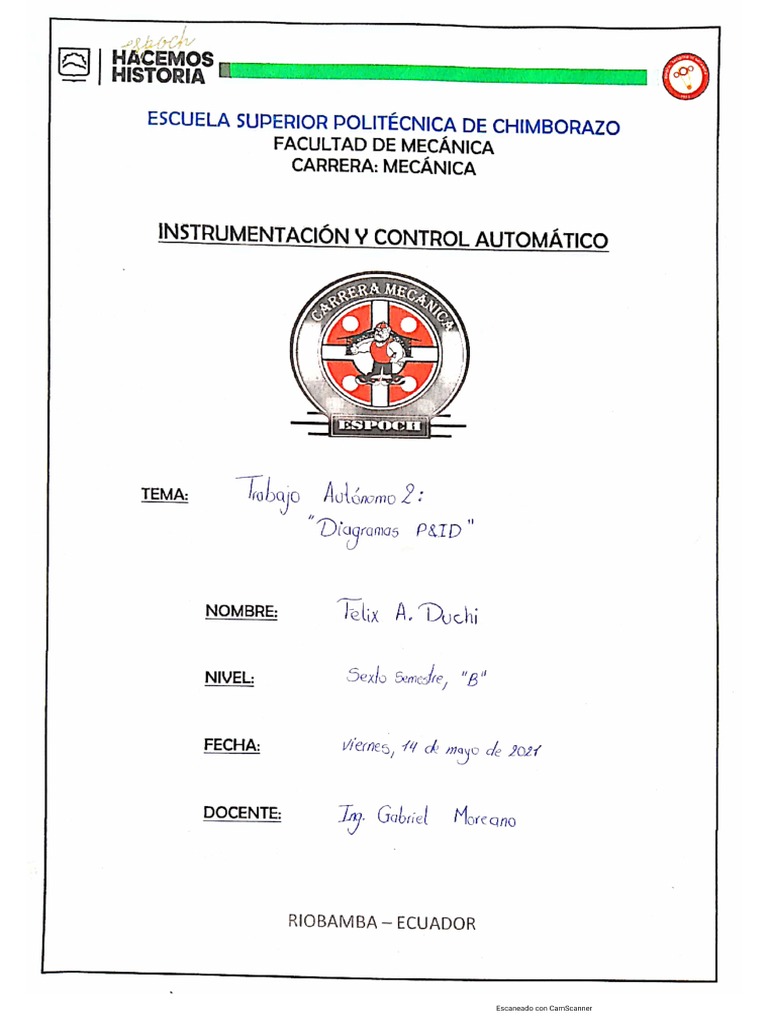 espoch
HACEMOS
HISTORIA
ESCUELA SUPERIOR POLITÉCNICA DE CHIMBORAZO
FACULTAD DE MECÁNICA
CARRERA: MECÁNICA
INSTRUMENTACIÓN Y CONTROL AUTOMÁTICO
CARRERA MECÁNICA
ESPOCH
TEMA: Trabajo Autónomo 2:
"Diagramas P&ID"
NOMBRE: Felix A. Duchi
NIVEL: Sexto Semestre, "B"
FECHA: viernes, 14 de mayo de 2021
DOCENTE: Ing. Gabriel Moreano
RIOBAMBA – ECUADOR
Escaneado con CamScanner